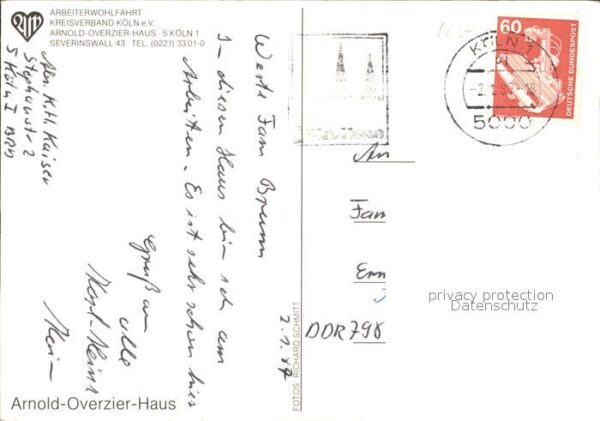 ARBEITERWOHLFAHRT
KREISVERBAND KÖLN e.V.
ARNOLD-OVERZIER-HAUS · 5 KÖLN 1
SEVERINSWALL 43 TEL. (0221) 3301-0
Abs. K.H. Kaiser
Stephanstr 2
5 Köln 1 BRD
Werte Fam Brumm
In diesem Haus bin ich am
Arbeiten. Es ist sehr schön hier
Gruß an
alle
Karl-Heinz
2.1.87
FOTOS RICHARD SCHMITT
Arnold-Overzier-Haus
60
DEUTSCHE BUNDESPOST
KÖLN 1
5000
An
Fam
DDR 798
privacy protection
Datenschutz